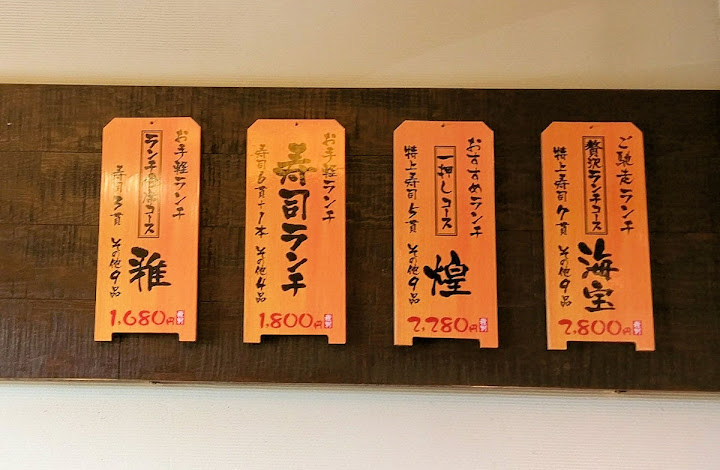 お手軽ランチ
ランチ会席コース
雅
寿司3貫 その他9品
1,680円税別
お手軽ランチ
寿司ランチ
寿司6貫+1本 その他4品
1,800円税別
おすすめランチ
一押しコース
煌
特上寿司5貫 その他9品
2,280円税別
ご馳走ランチ
贅沢ランチコース
海宝
特上寿司7貫 その他9品
2,800円税別